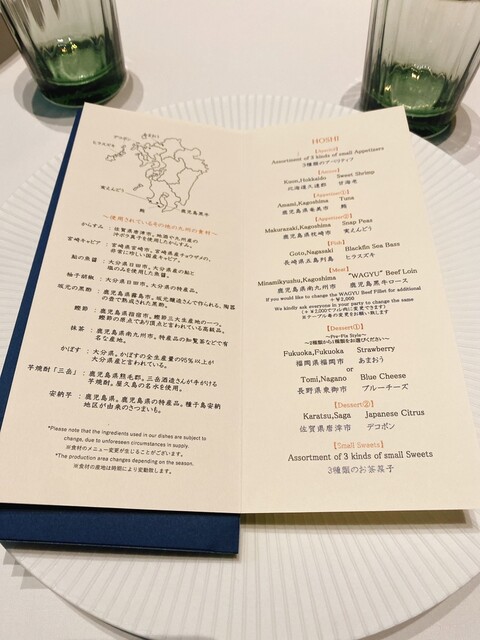 デコポン
あまおう
ヒラスズキ
実えんどう
鮪
鹿児島黒牛
～使用されているその他の九州の食材～
からすみ : 佐賀県唐津市。地酒や九州産の
沖ボラ真子を使用したからすみ。
宮崎キャビア : 宮崎県宮崎市。宮崎県産チョウザメの、
非常に珍しい国産キャビア。
鮎の魚醤 : 大分県日田市。大分県産の鮎と
塩のみを使用した魚醤。
柚子胡椒 : 大分県日田市。大分県の特産品。
坂元の黒酢 : 鹿児島県霧島市。坂元醸造さんで作られる、陶器
の壺で熟成された黒酢。
鰹節 : 鹿児島県指宿市。鰹節三大生産地の一つ。
鰹節の原点であり頂点と言われている高級品。
抹茶 : 鹿児島県南九州市。特産品の知覧茶などで有
名な産地。
かぼす : 大分県。かぼすの全生産量の95%以上が
大分県産と言われている。
芋焼酎「三岳」 : 鹿児島県熊毛郡。三岳酒造さんが手がける
芋焼酎。屋久島の名水使用。
安納芋 : 鹿児島県。鹿児島県の特産品。種子島安納
地区が由来のさつまいも。
*Please note that the ingredients used in our dishes are subject to
change, due to unforeseen circumstances in supply.
※食材のメニュー変更が生じることがございます。
*The production area changes depending on the season.
※食材の産地は時期により変動致します。
HOSHI
Assortment of 3 kinds of small Appetizers
3種類のアペリティフ
Kudo,Hokkaido Sweet Shrimp
北海道久遠郡 甘海老
【Appetizer①】
Amami,Kagoshima Tuna
鹿児島県奄美市 鮪
【Appetizer②】
Makurazaki,Kagoshima Snap Peas
鹿児島県枕崎市 実えんどう
【Fish】
Goto,Nagasaki Blackfin Sea Bass
長崎県五島列島 ヒラスズキ
【Meat】
Minamikyushu,Kagoshima "WAGYU" Beef Loin
鹿児島県南九州市 鹿児島黒牛ロース
If you would like to change the WAGYU Beef Fillet for additional
+ ¥2,000
We kindly ask everyone in your party to change the same
(+¥2,000でフィレ肉に変更できます)
※テーブル毎の変更をお願い致します
【Dessert①】
～Pre-Fix Style～
～2種類から1種類をお選びください～
Fukuoka,Fukuoka Strawberry
福岡県福岡市 あまおう
or
Tomi,Nagano Blue Cheese
長野県東御市 ブルーチーズ
【Dessert②】
Karatsu,Saga Japanese Citrus
佐賀県唐津市 デコポン
【Small Sweets】
Assortment of 3 kinds of small Sweets
3種類のお茶菓子